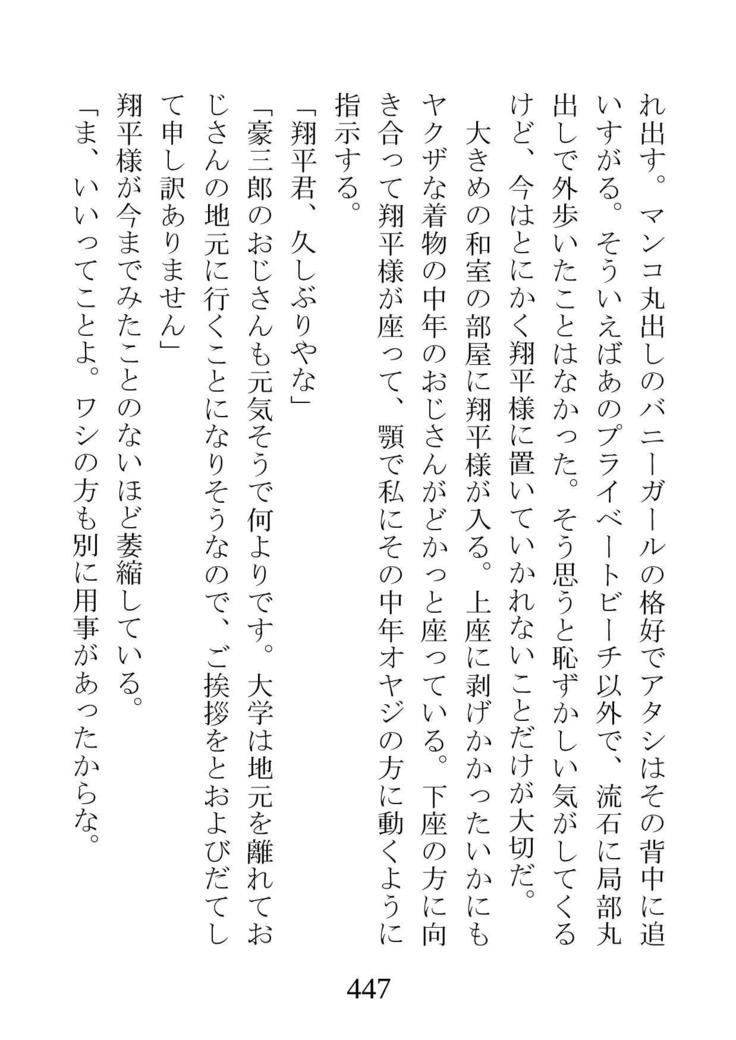 れ出す。マンコ丸出しのバニーガールの格好でアタシはその背中に追
いすがる。そういえばあのプライベートビーチ以外で、流石に局部丸
出しで外歩いたことはなかった。そう思うと恥ずかしい気がしてくる
けど、今はとにかく翔平様に置いていかれないことだけが大切だ。
　大きめの和室の部屋に翔平様が入る。上座に剥げかかったいかにも
ヤクザな着物の中年のおじさんがどかっと座っている。下座の方に向
き合って翔平様が座って、顎で私にその中年オヤジの方に動くように
指示する。
「翔平君、久しぶりやな」
「豪三郎のおじさんも元気そうで何よりです。大学は地元を離れてお
じさんの地元に行くことになりそうなので、ご挨拶をとおよびだてし
て申し訳ありません」
翔平様が今までみたことのないほど萎縮している。
「ま、いいってことよ。ワシの方も別に用事があったからな。
447